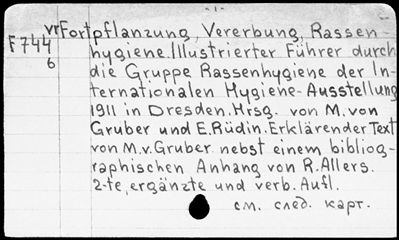 - 1 -
vr Fortpflanzung, Vererbung, Rassen-
F744 hygiene. Illustrierter Führer durch
6 die Gruppe Rassenhygiene der In-
ternationalen Hygiene-Ausstellung
1911 in Dresden. Hrsg. von M. von
Gruber und E. Rüdin. Erklärender Text
von M. v. Gruber nebst einem bibliog-
raphischen Anhang von R. Allers.
2-te, ergänzte und verb. Aufl.
см. след. карт.